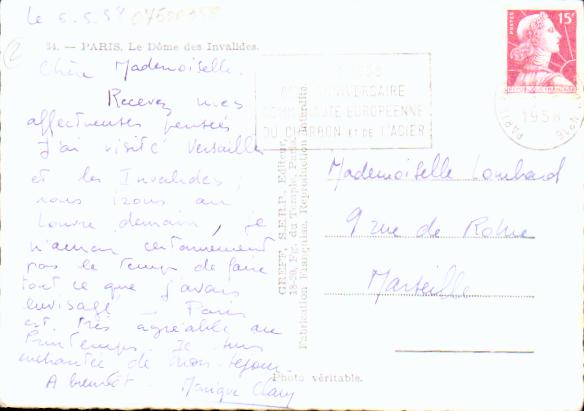 Le 5.5.58
34. — PARIS. Le Dôme des Invalides.
Chère Mademoiselle.
Recevez mes
affectueuses pensées
J'ai visité Versailles
et les Invalides;
nous irons au
Louvre demain, je
n'aurai certainement
pas le temps de faire
tout ce que j'avais
envisagé — Paris
est très agréable au
Printemps. Je suis
enchantée de mon séjour.
A bientôt.
ANNIVERSAIRE
COMMUNAUTÉ EUROPÉENNE
DU CHARBON ET DE L'ACIER
POSTES
15F
REPUBLIQUE FRANÇAISE
PARIS
1958
GREFF, S.E.R.P. Editeur,
du Temple, Paris.
Fabrication Française. Reproduction interdite.
Mademoiselle Lombard
9 rue de Rome
Marseille
Photo véritable.